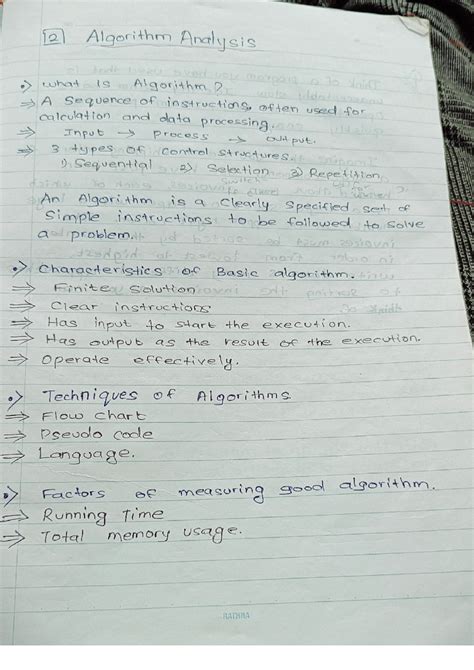 2 Algorithm Analysis
•) What is Algorithm?
⇒ A sequence of instructions, often used for
calculation and data processing.
⇒ Input → process → output.
⇒ 3 types of control structures.
1) Sequential 2) Selection 3) Repetition
An Algorithm is a clearly specified set of
simple instructions to be followed to solve
a problem.
•) Characteristics of Basic algorithm.
⇒ Finite solution
⇒ Clear instructions
⇒ Has input to start the execution.
⇒ Has output as the result of the execution.
⇒ Operate effectively.
•) Techniques of Algorithms
⇒ Flow chart
⇒ Pseudo code
⇒ Language.
•) Factors of measuring good algorithm.
⇒ Running Time
⇒ Total memory usage.